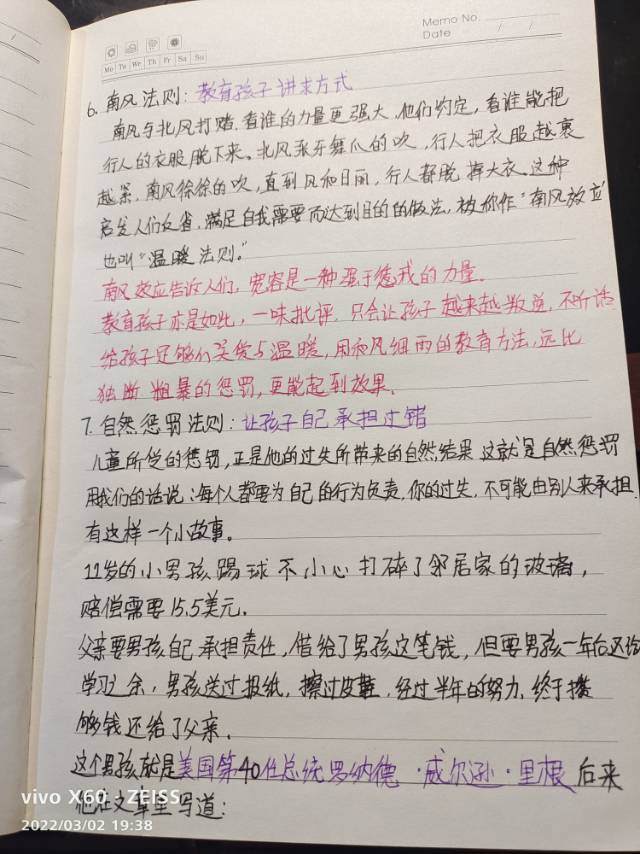 Memo No.
Date / /
Mo Tu We Th Fr Sa Su
6. 南风法则：教育孩子讲求方式
南风与北风打赌，看谁的力量更强大，他们约定，看谁能把
行人的衣服脱下来。北风张牙舞爪的吹，行人把衣服越裹
越紧，南风徐徐的吹，直到风和日丽，行人都脱掉大衣。这种
启发人们反省，满足自我需要而达到目的的做法，被称作“南风效应
也叫“温暖法则。”
南风效应告诉人们，宽容是一种强于惩戒的力量。
教育孩子亦是如此，一味批评，只会让孩子越来越叛逆，不听话
给孩子足够们关货与温暖，用和风细雨的教育方法，远比
独断粗暴的惩罚，更能起到效果。
7. 自然惩罚法则：让孩子自己承担过错
儿童所受的惩罚，正是他的过失所带来的自然结果 这就是自然惩罚
用我们的话说：每个人都要为自己的行为负责，你的过失，不可能由别人来承担.
有这样一个小故事。
11岁的小男孩踢球不小心打碎了邻居家的玻璃，
赔偿需要15.5美元.
父亲要男孩自己承担责任，借给了男孩这笔钱，但要男孩一年后还给
学习之余，男孩送过报纸，擦过皮鞋，经过半年的努力，终于攒
够钱还给了父亲.
这个男孩就是美国第40任总统罗纳德·威尔逊·里根 后来
他在文章里写道：
vivo X60 ZEISS
2022/03/02 19:38